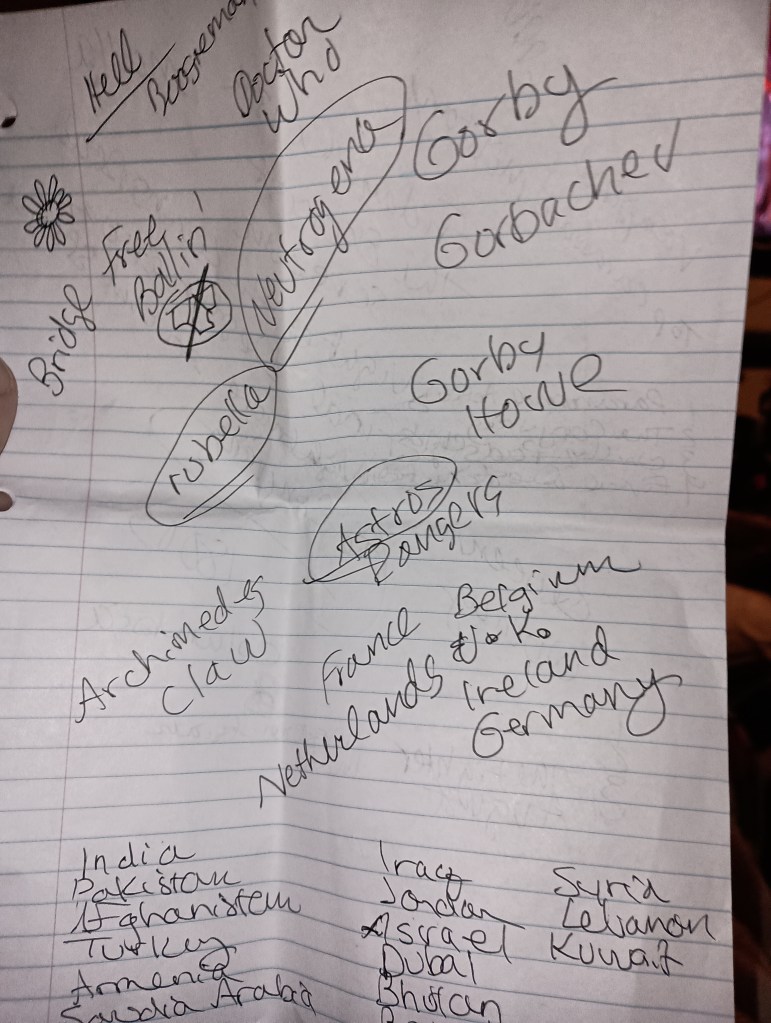 Hell
Boogeman
Doctor
Who
Neutrogena
Gorby
Gorbachev
Free
Ballin'
Bridge
rubella
Gorby
Howe
Astros
Rangers
Archimedes
Claw
France
Netherlands
Belgium
U.K.
Ireland
Germany
India
Pakistan
Afghanistan
Turkey
Armenia
Saudia Arabia
Iraq
Jordan
Israel
Dubai
Bhutan
Syria
Lebanon
Kuwait